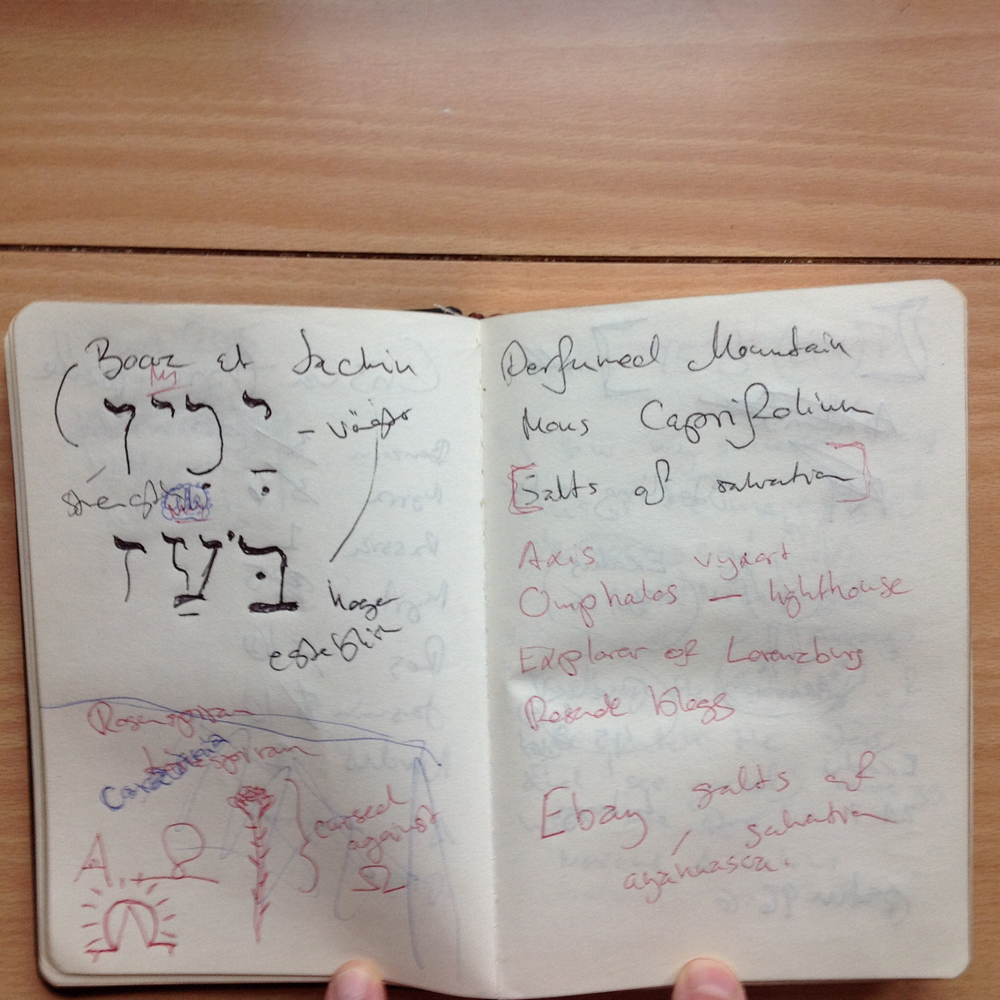 Boaz et Jachin
יכין
strength
בעז
höger
establish
Rosengoran
A
cursed
against
Ω
Perfumed Mountain
Mons Caprifolium
[Salts of salvation]
Axis
Omphalos — lighthouse
Explorer of Lorenzburg
blogs
Ebay salts of
salvation
ayahuasca.